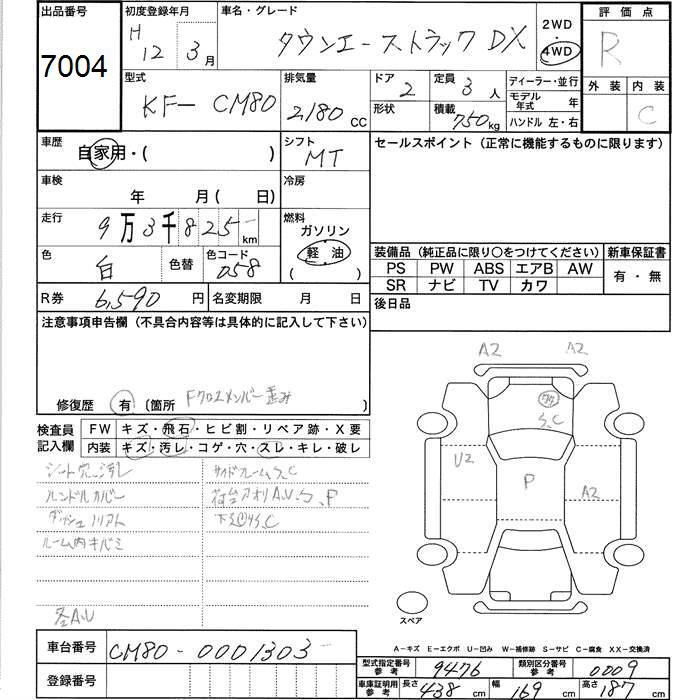 出品番号
7004
初度登録年月
H 12年 3月
車名・グレード
タウンエーストラック DX
2WD
・
4WD
評価点
R
外装 内装
C
型式
KF-CM80
排気量
2180 CC
ドア
2
定員
3 人
形状
積載
750kg
ディーラー・並行
モデル年式 年
ハンドル 左・右
車歴
自家用・( )
シフト
MT
セールスポイント（正常に機能するものに限ります）
車検
年 月( 日)
冷房
走行
9万3千825- km
燃料
ガソリン
軽油
( )
色
白
色替
色コード
058
装備品（純正品に限り〇をつけてください）
新車保証書
PS PW ABS エアB AW
SR ナビ TV カワ
有・無
R券
6,590 円
名変期限 月 日
後日品
注意事項申告欄（不具合内容等は具体的に記入して下さい）
修復歴 有 〔箇所 Fクロスメンバー歪み ）
検査員
記入欄
FW キズ・飛石・ヒビ割・リペア跡・X要
内装 キズ・汚レ・コゲ・穴・スレ・キレ・破レ
シート穴、汚レ
ハンドルカバー
ルーム内キバミ
各A.U
サイドフレームS、C
荷台アオリA.U、S、P
下廻りS、C
A2 A2
S、C
U2
P
A2
スペア
A-キズ E-エクボ U-凹み W-補修跡 S-サビ C-腐食 XX-交換済
車台番号
CM80-0001303-
登録番号
型式指定番号
参考
9476
類別区分番号
参考
0009
車庫証明用
参考
長さ 438 cm 幅 169 cm 高さ 187 cm